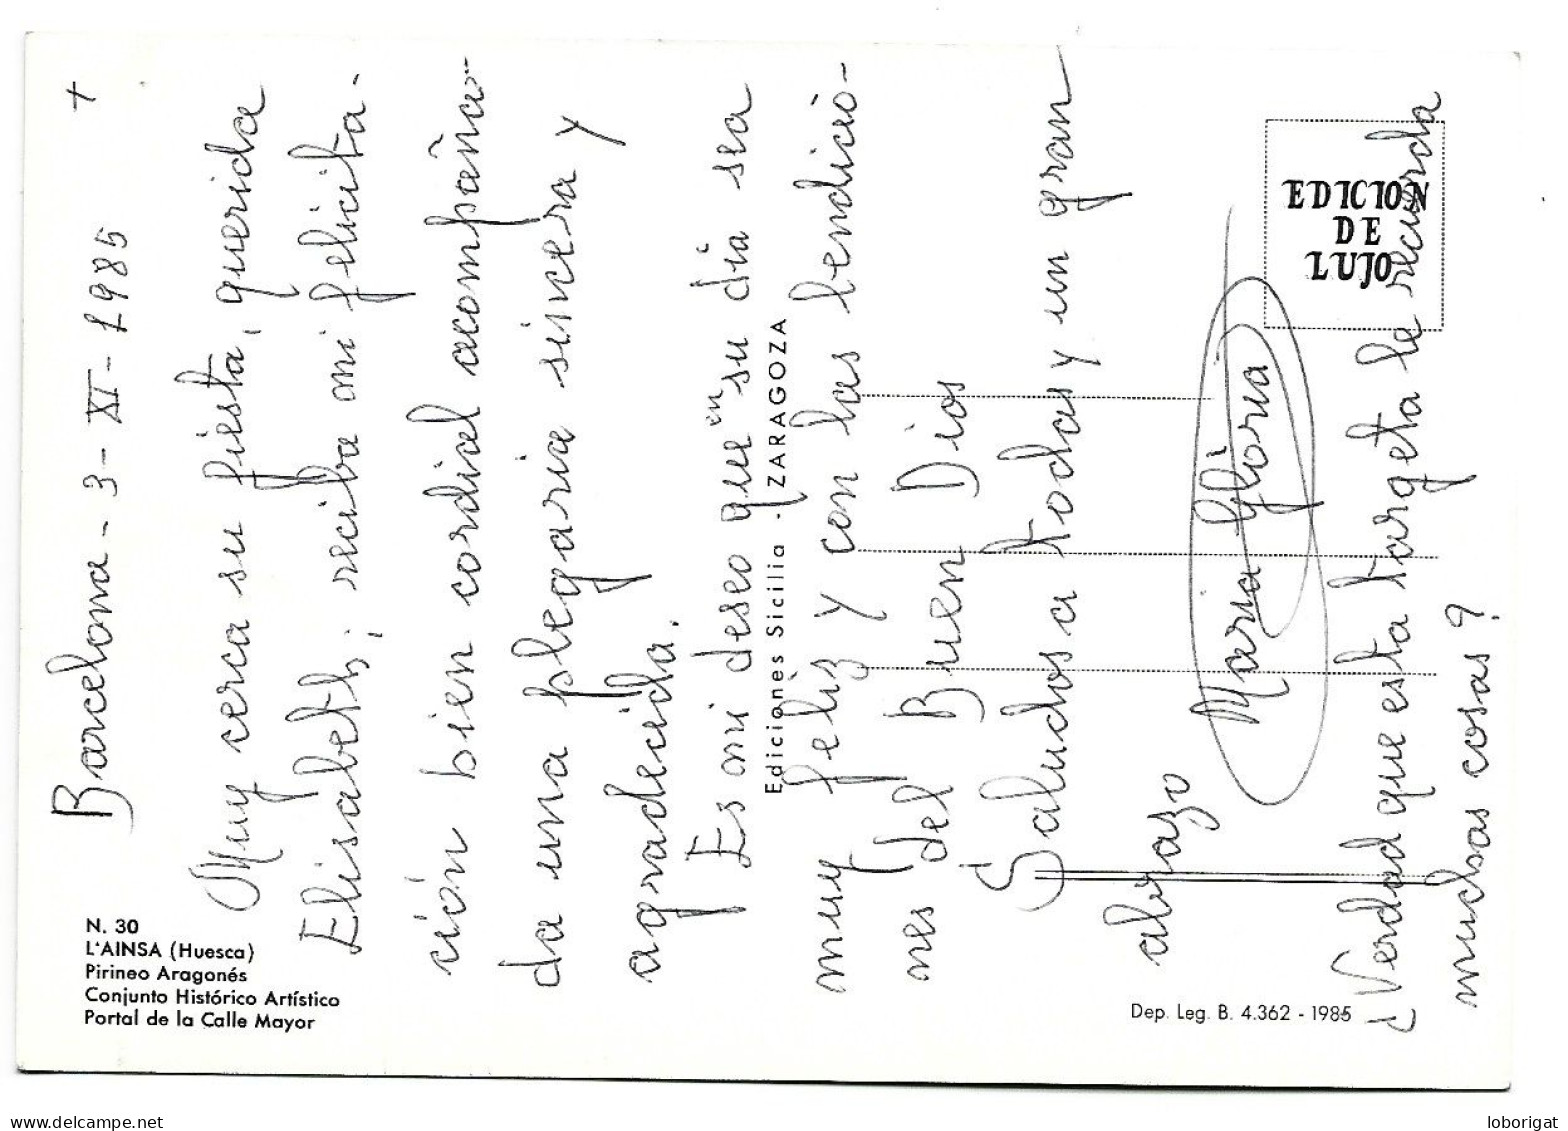 +
Barcelona - 3 - XI - 1985
Muy cerca su fiesta, querida
Elisabeth; reciba mi felicita-
ción bien cordial acompaña-
da una plegaria sincera y
agradecida.
Es mi deseo que en su dia sea
muy feliz y con las bendicio-
nes del Buen Dios
Saludos a todas y un gran
abrazo
Maria Gloria
¿Verdad que esta targeta le recuerda
muchas cosas?
N. 30
L'AINSA (Huesca)
Pirineo Aragonés
Conjunto Histórico Artístico
Portal de la Calle Mayor
Ediciones Sicilia - ZARAGOZA
EDICION
DE
LUJO
Dep. Leg. B. 4.362 - 1985
loborigat